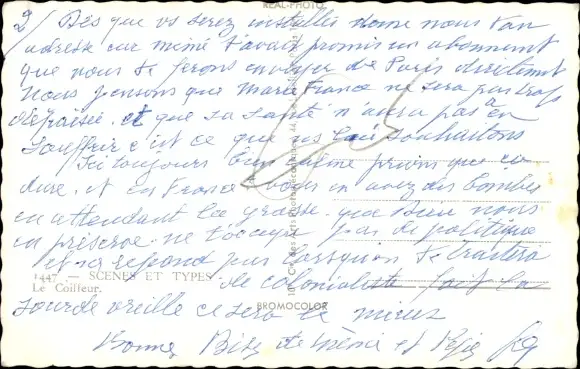 REAL-PHOTO
2/ Dès que vs serez installés donne nous ton
adresse car mémé t'avait promis un abonnement
que nous te ferons envoyer de Paris directement
Nous pensons que Marie France ne sera pas trop
dépaisée et que sa santé n'aura pas à en
souffrir c'est ce que ns lui souhaitons
Ici toujours bien calme prions que ça
dure et en France vous en avez des bombes
en attendant la grosse que Dieu nous
en préserve ne t'occupe pas de politique
et ne répond pas lorsqu'on te traitera
1447 - SCENES ET TYPES
de colonialiste fait la
Le Coiffeur.
sourde oreille ce sera le mieux
BROMOCOLOR
Bonnes Bises de mémé et